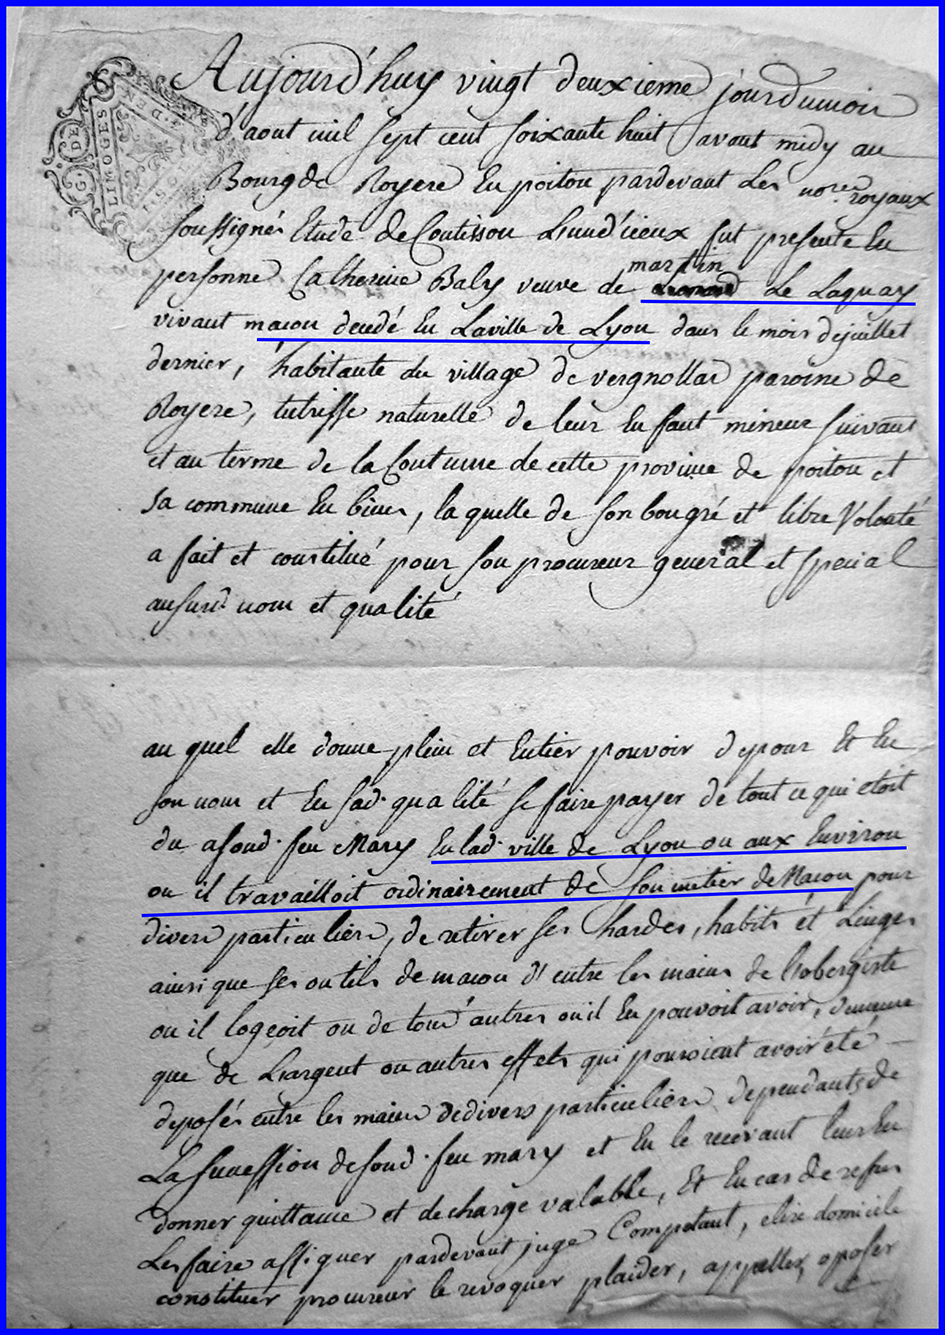 G. DE
LIMOGES
Aujourd'huy vingt deuxieme jour du mois
d'aout mil sept cent soixante huit avant midy au
Bourg de Royere En poitou pardevant Les no.res royaux
soussignés Etude de Coutisson fut presente En
martin
personne Catherine Baly veuve de Le Laguay
vivant macon decedé En Laville de Lyon dans le mois de juillet
dernier, habitante du village de vergnollas paroisse de
Royere, tutrisse naturelle de leur Enfant mineur suivant
et au terme de la Coutume de cette province de poitou et
sa commune En biens, la quelle de son bougré et libre Volonté
a fait et constitué pour son procureur general et special
ausurd. nom et qualité
au quel elle donne plein et Entier pouvoir de pour Et En
son nom et En sad. qualité se faire payer de tout ce qui etoit
du a sond. feu Mary En lad. ville de Lyon ou aux Environ
ou il travailloit ordinairement de son metier de Macon pour
divers particuliers, de retirer ses hardes, habits et Linges
ainsi que ses outils de macon d'entre les mains de Lobergiste
ou il logeoit ou de tous autres ou il En pouvoit avoir, dememe
que de Largent ou autres effets qui pouroient avoir été —
deposés entre les mains de divers particuliers dependants de
La succession de sond. feu mary et En le recevant leurs En
donner quittance et decharge valable, Et En cas de refus
Les faire assiquer pardevant juge Competant, elire domicile
constituer procureur le revoquer plaider, appeller, oposer